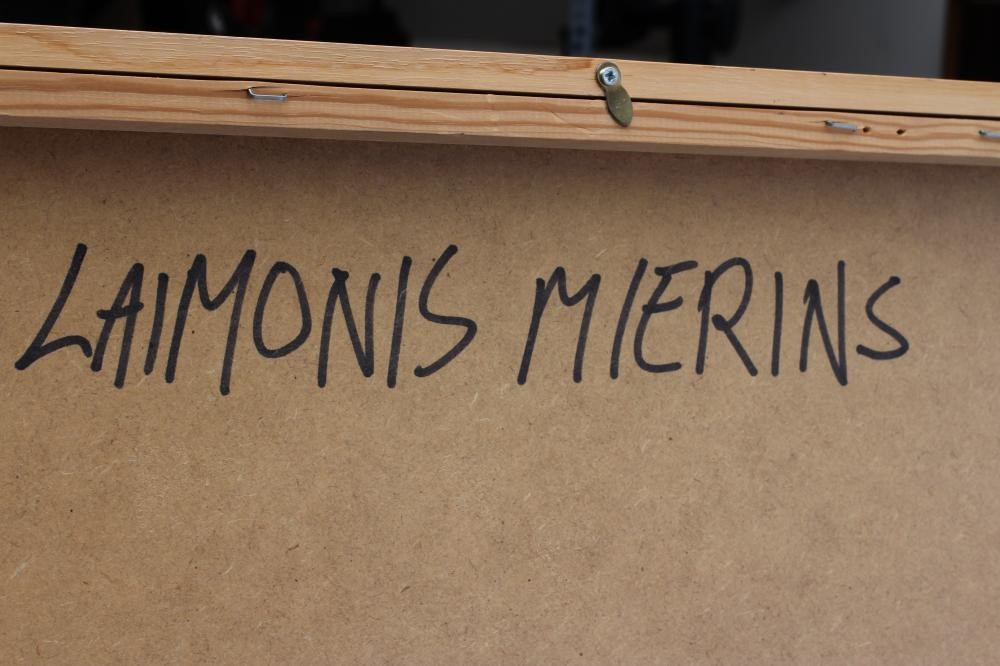 LAIMONIS MIERINS